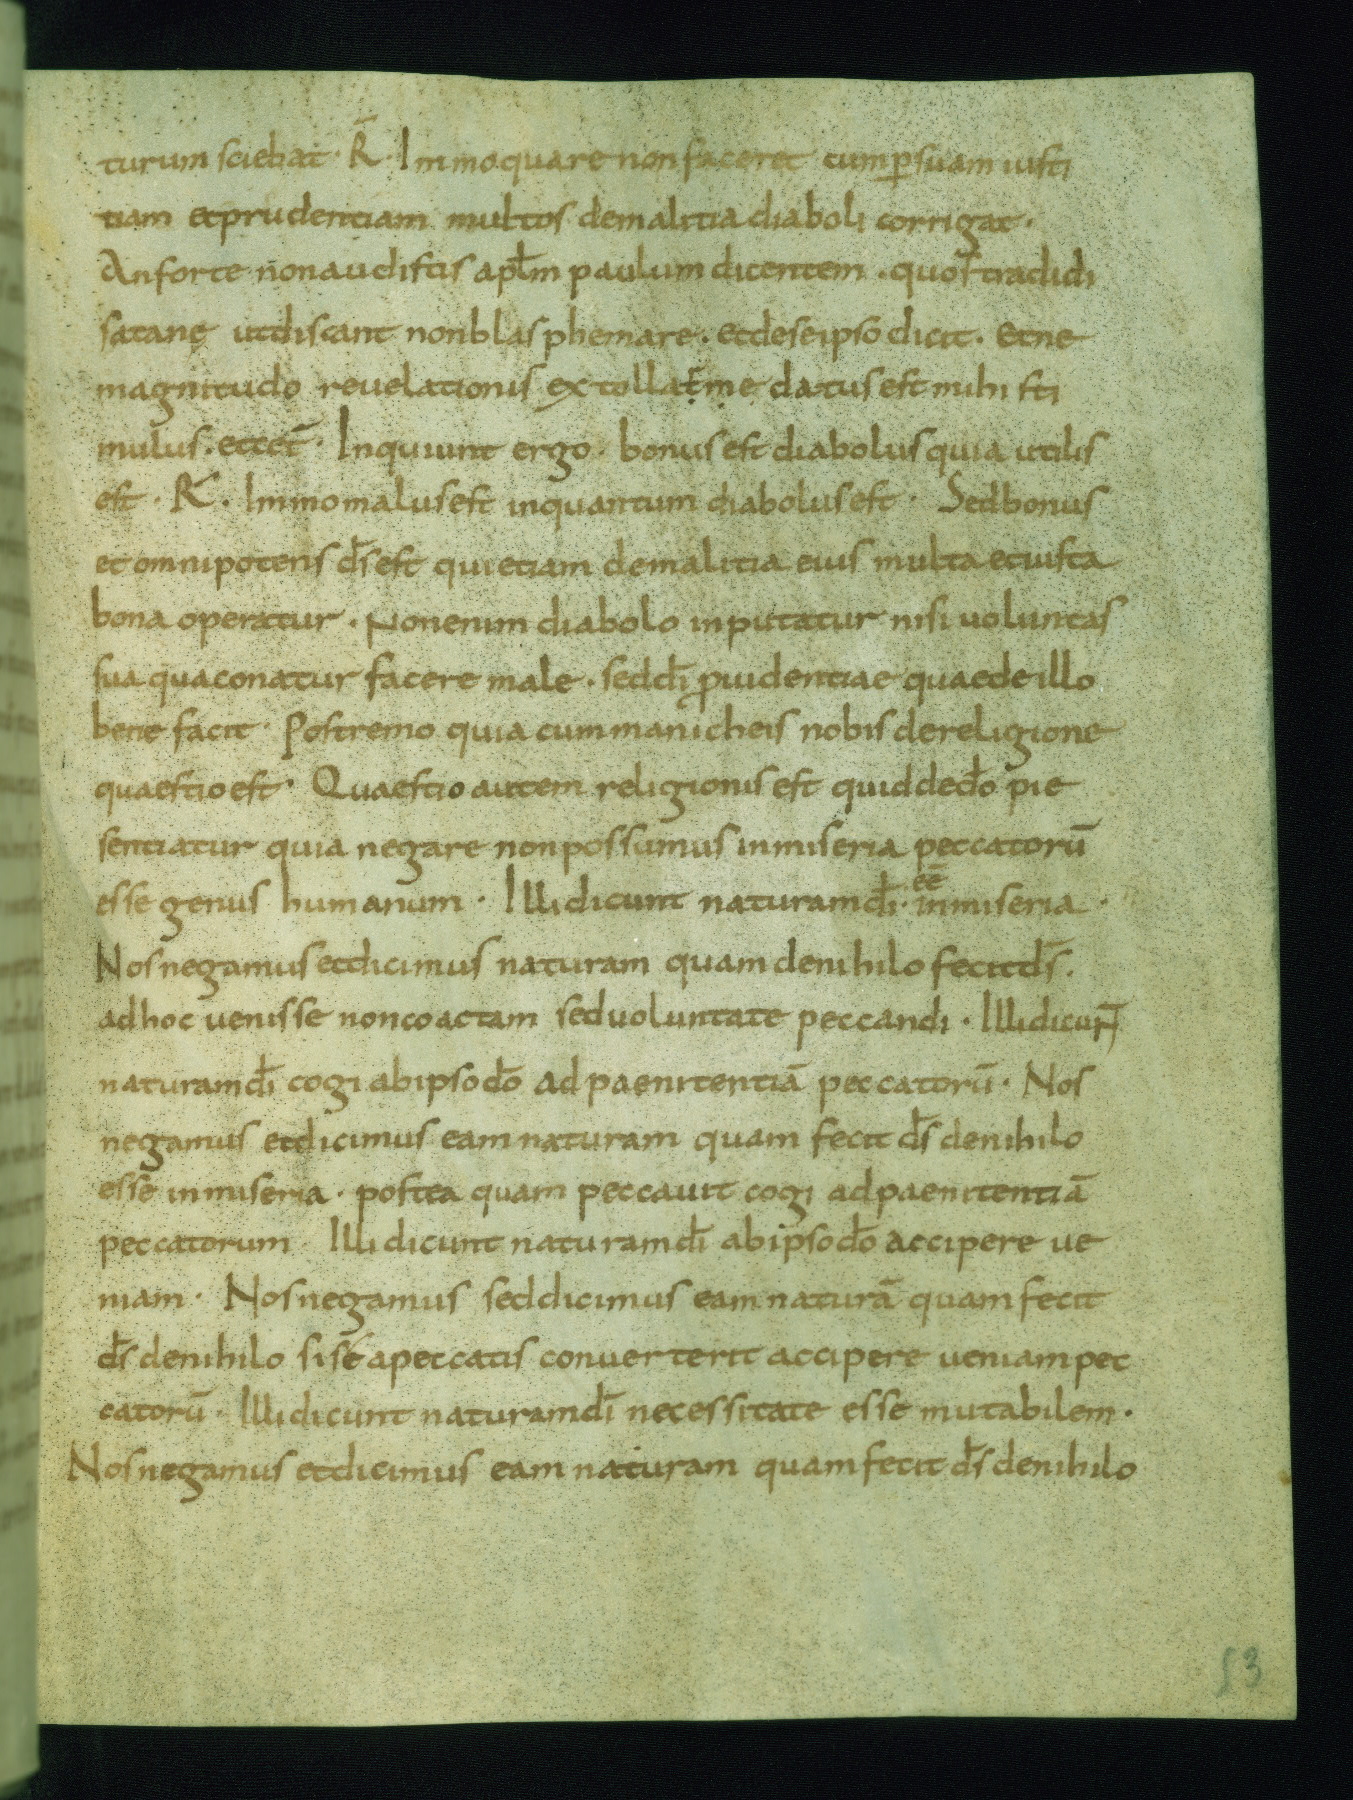 turum sciebat · R̄ · Immo quare non faceret cum ꝑ suam iusti
tiam et prudentiam multos de malitia diaboli corrigat ·
An forte non audistis apl̄m paulum dicentem · quos tradidi
satanę ut discant non blasphemare · et de se ipso dicit · Et ne
magnitudo revelationis extollat me datus est mihi sti
mulus · et cet̄ · Inquiunt ergo · bonus est diabolus quia utilis
est · R̄ · Immo malus est inquantum diabolus est · Sed bonus
et omnipotens d̄s est qui etiam de malitia eius multa et iusta
bona operatur · Non enim diabolo inputatur nisi uoluntas
sua qua conatur facere male · sed dī ꝓuidentiae quae de illo
bene facit · Postremo quia cum manicheis nobis de religione
quaestio est · Quaestio autem religionis est quid de d̄o pie
sentiatur quia negare non possumus in miseria peccatorū
esse genus humanum · Illi dicunt naturam dī · ēē in miseria ·
Nos negamus et dicimus naturam quam de nihilo fecit d̄s ·
ad hoc uenisse non coactam sed uoluntate peccandi · Illi dicun̄t
naturam dī cogi ab ipso d̄o ad paenitentiā peccatorū · Nos
negamus et dicimus eam naturam quam fecit d̄s de nihilo
esse in miseria · postea quam peccauit cogi ad paenitentiā
peccatorum Illi dicunt naturam dī ab ipso d̄o accipere ue
niam · Nos negamus sed dicimus eam naturā quam fecit
d̄s de nihilo si se a peccatis conuerterit accipere ueniam pec
catorū · Illi dicunt naturam dī necessitate esse mutabilem ·
Nos negamus et dicimus eam naturam quam fecit d̄s de nihilo
53